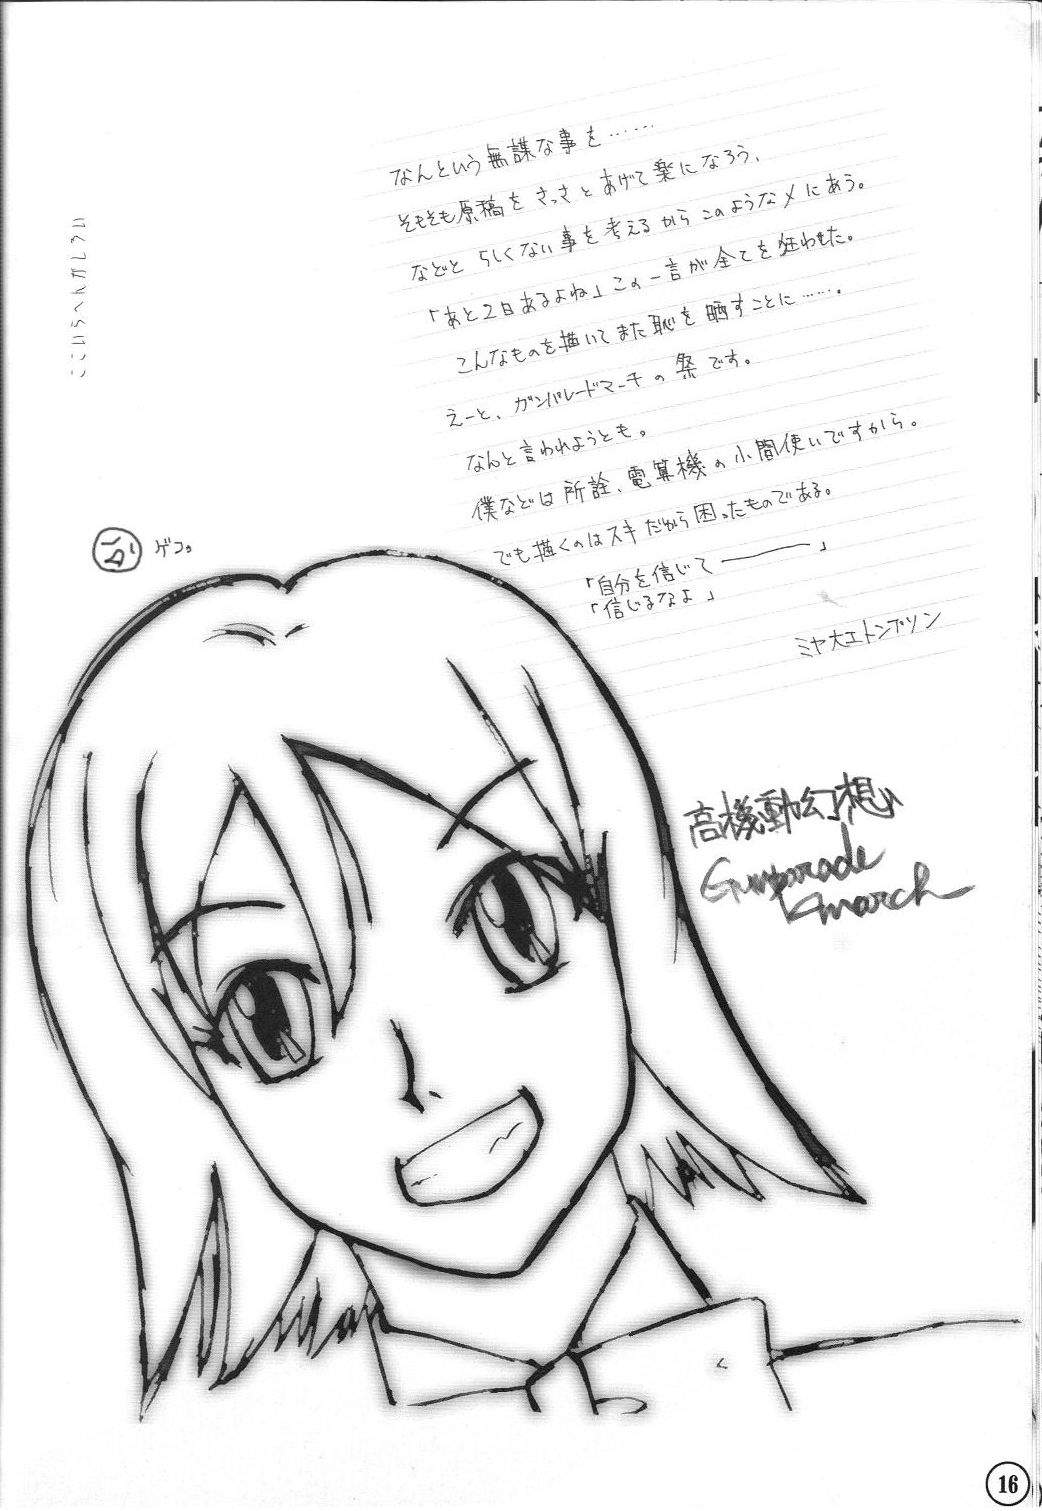 なんという無謀な事を……
そもそも原稿をさっさとあげて楽になろう、
などと らしくない事を考えるからこのようなメにあう。
「あと2日あるよね」この一言が全てを狂わせた。
こんなものを描いてまた恥を晒すことに……。
えーと、ガンパレードマーチの祭です。
なんと言われようとも。
僕などは所詮、電算機の小間使いですから。
でも描くのはスキだから困ったものである。
「自分を信じて――」
「信じるなよ」
ミヤ大エトンプソン
ここいらへんがしろい
ゲコ。
高機動幻想
Gunparade
march
16